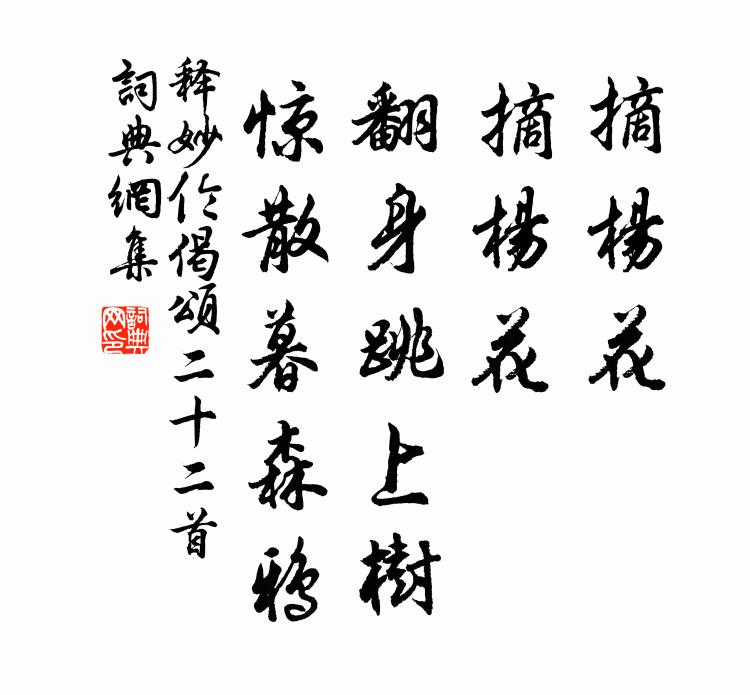 摘楊花
摘楊花
翻身跳上樹
惊散暮森鴉
释妙伦偈頌二十二首
詞典網集
詞典网印